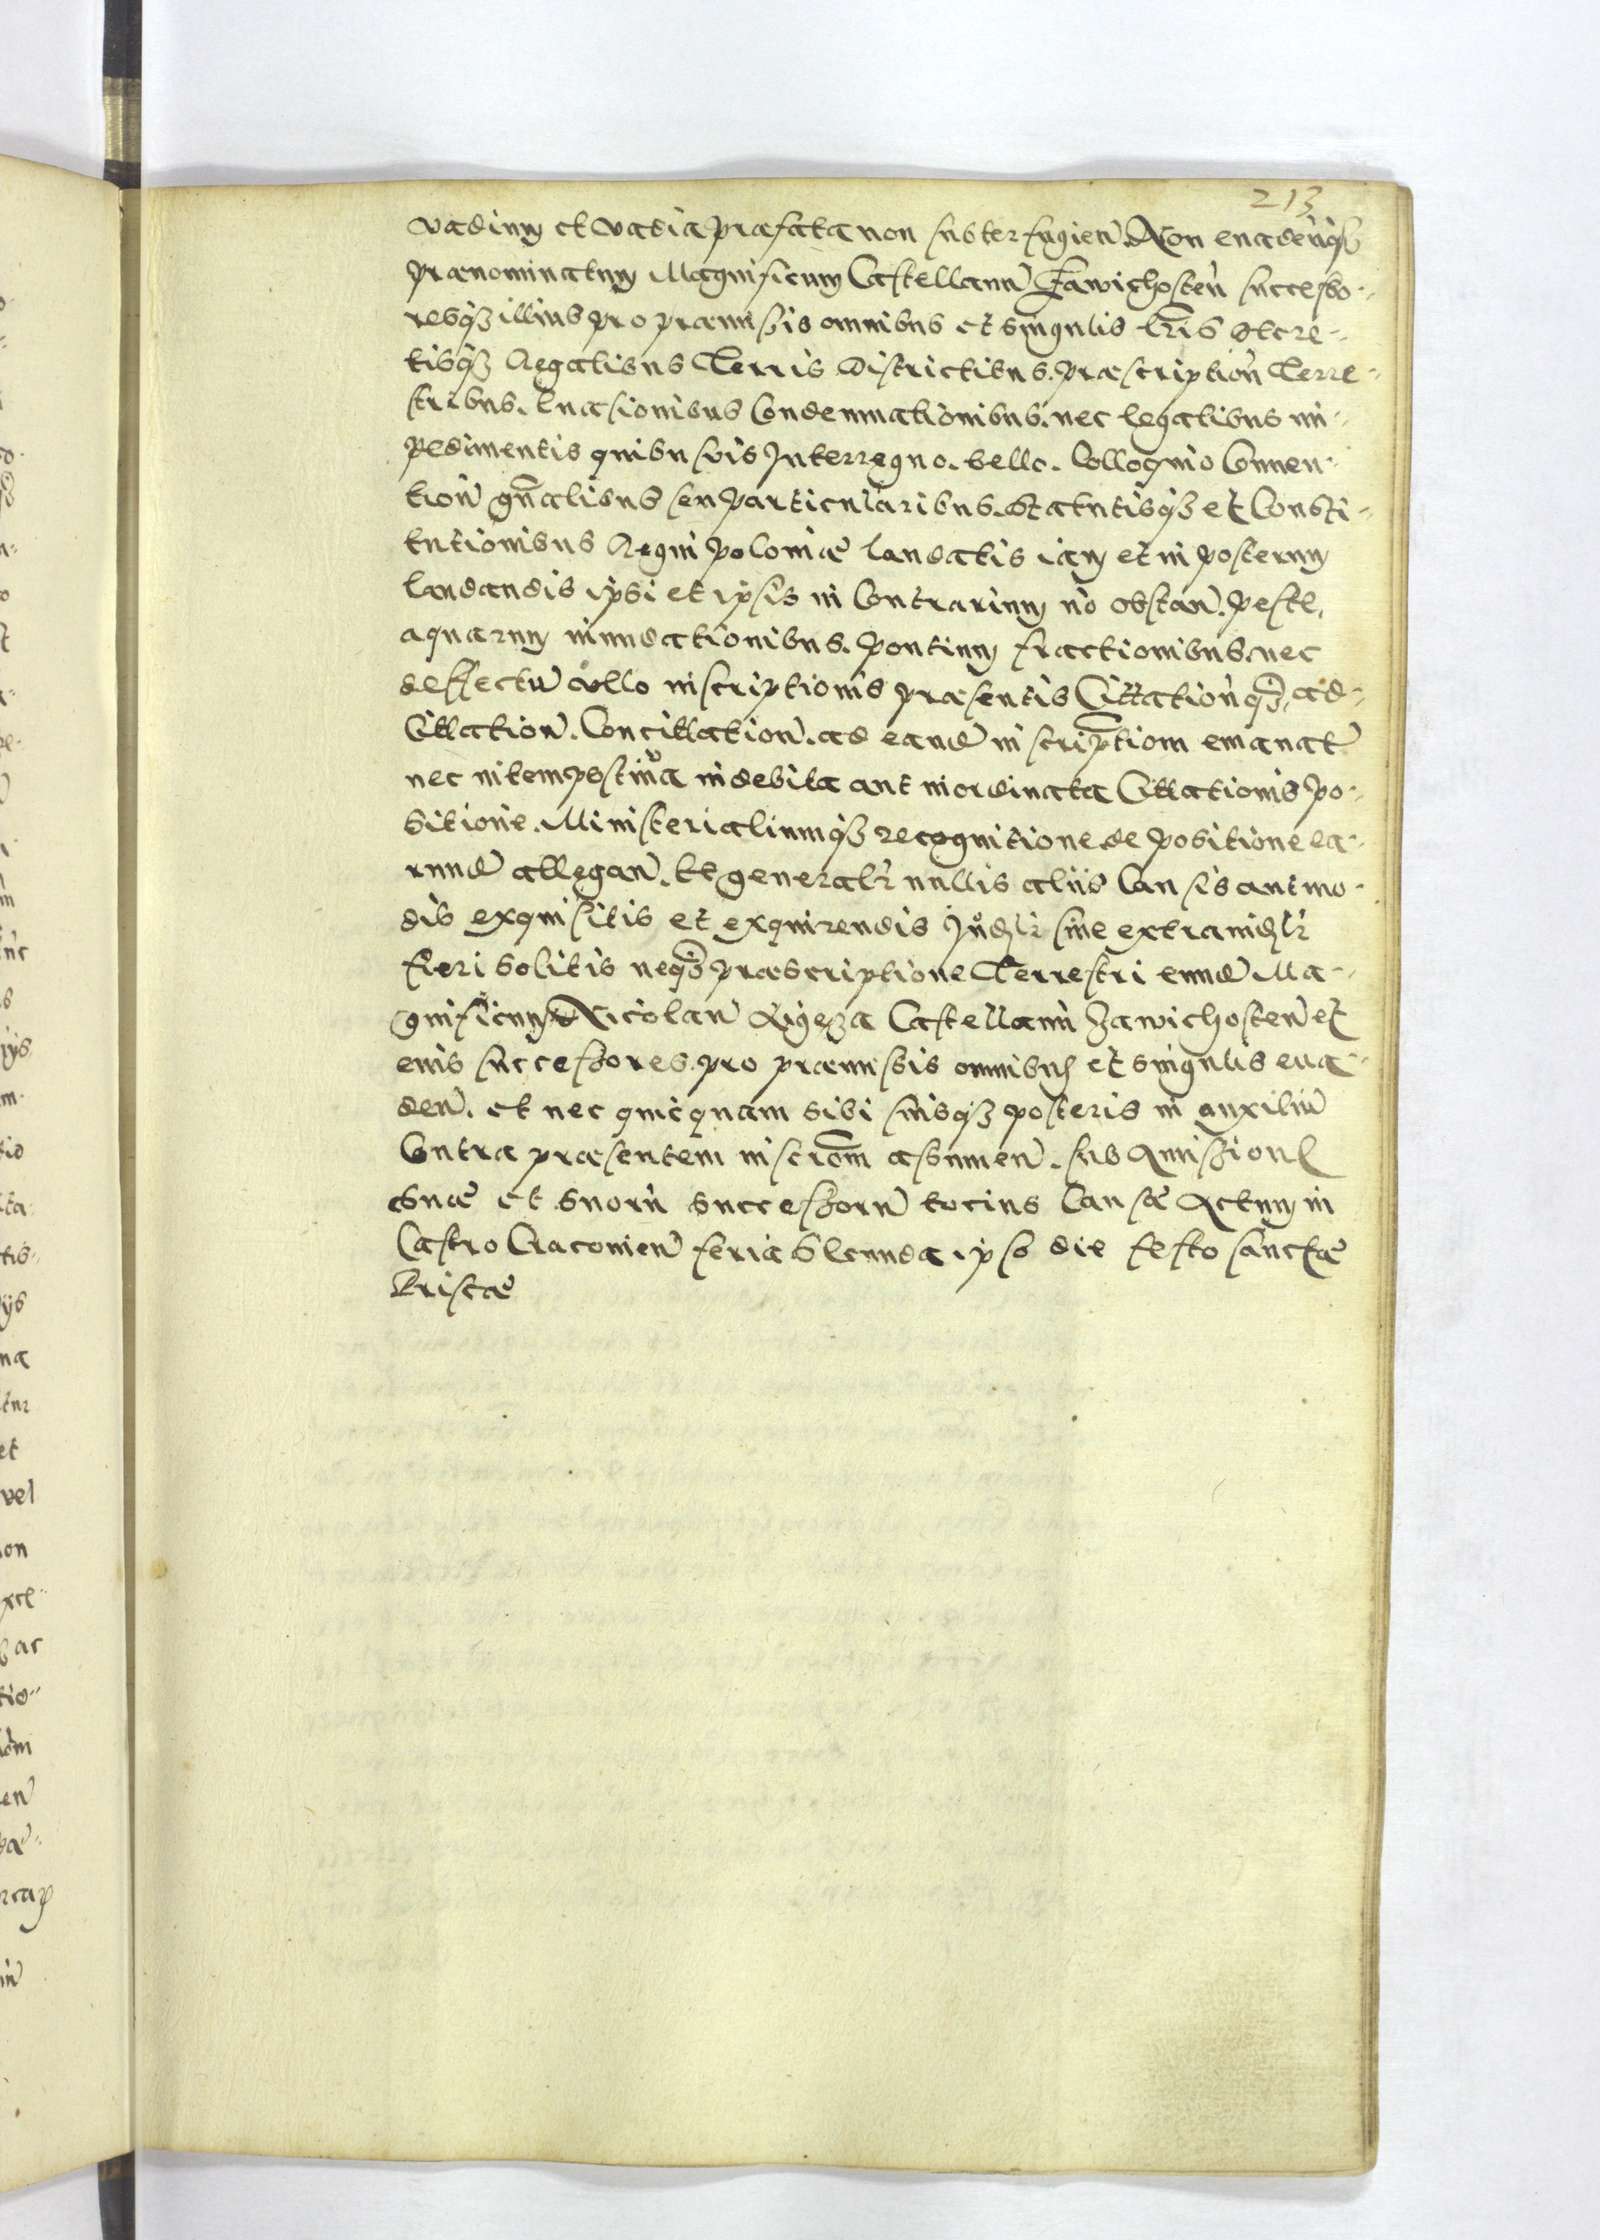 213
vadium et vadia praefata non subterfugien. Non evadenq3
praenominatum Magnificum Castellanu Zawichosten successo-
resq3 illius pro praemissis omnibus et singulis lris decre-
tisq3 Regalibus Terris Districtibus. praescription Terre-
stribus. Evasionibus Condemnationibus. nec legalibus im-
pedimentis quibusvis Interregno. bello. Colloquio Conven-
tion gnalibus seu particularibus. Statutisq3 et Consti-
tutionibus Regni Poloniae laudatis iam et in posterum
laudandis ipsi et ipsis in Contrarium no obstan. peste,
aquarum inundationibus. pontium fractionibus. nec
deffectu ullo inscriptionis praesentis Cittationq3, ad-
Cittation. Concittation. ad eand inscriptiom emanat
nec intempestiva indebita aut inordinata Cittationis po-
sitione. Ministerialiumq3 recognitione de positione ea-
rund allegan. Et generalr nullis aliis Causis aut mo-
dis exquisitis et exquirendis Judlr sive extraiudlr
fieri solitis neq3 praescriptione Terrestri eund Ma-
gnificum Nicolau Ligęza Castellanu Zawichosten et
eius successores. pro praemissis omnibus et singulis eva-
den. et nec quicquam sibi suisq3 posteris in auxiliu
Contra praesentem inscrom assumen. sub Amissione
suae et suoru successoru totius Causae Actum in
Castro Cracovien feria Secunda ipso die festo sanctae
Priscae